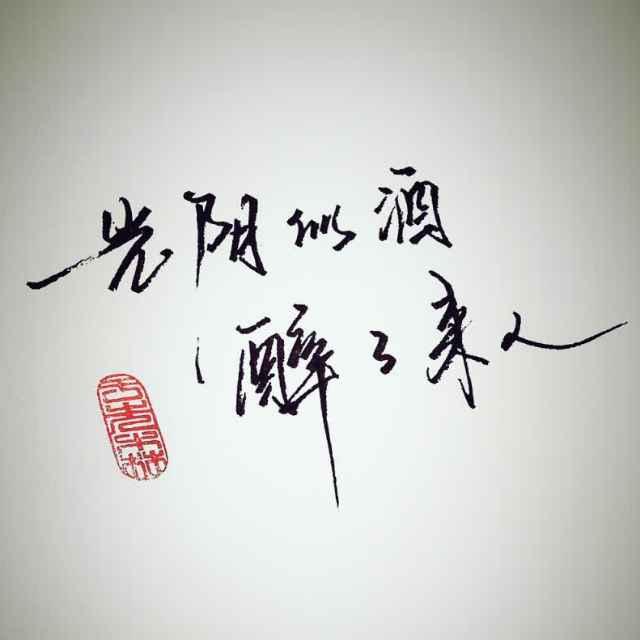 光阴似酒
醉了来人